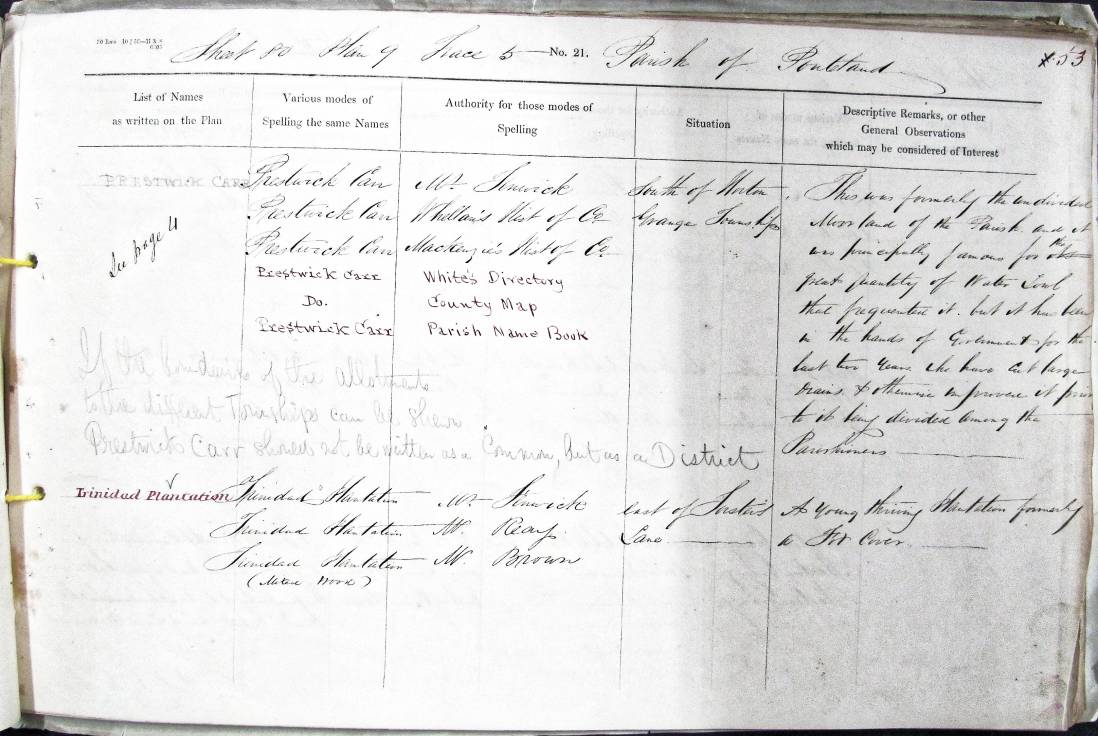 Sheet 80 Plan 9 Trace 5 No. 21. Parish of Ponteland
53
List of Names
as written on the Plan
Various modes of
Spelling the same Names
Authority for those modes of
Spelling
Situation
Descriptive Remarks, or other
General Observations
which may be considered of Interest
PRESTWICK CARR
See page 4
Prestwick Carr Mr. Fenwick
Prestwick Carr Whellan's Hist of Co.
Prestwick Carr Mackenzie's Hist of Co.
Prestwick Carr White's Directory
Do. County Map
Prestwick Carr Parish Name Book
South of Horton
Grange Township
This was formerly the undivided
Moorland of the Parish and it
was principally famous for the
great quantity of Water Fowl
that frequented it. but it has been
in the hands of Government for the
last two years who have cut large
drains & otherwise improve it prior
to it being divided among the
Parishioners
If the boundaries of the allotments
to the different Townships can be shewn
Prestwick Carr should not be written as a Common, but as a District
Trinidad Plantation
Trinidad Plantation Mr. Fenwick
Trinidad Plantation Mr.
Trinidad Plantation Mr. Brown
east of
Lane
A Young thriving Plantation formerly
a Fox Cover